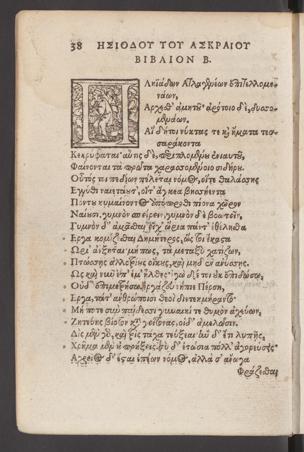 38 ΗΣΙΟΔΟΥ ΤΟΥ ΑΣΚΡΑΙΟΥ
ΒΙΒΛΙΟΝ Β.
Πληϊάδων Ἀτλαγενέων ἐπιτελλομε-
νάων,
Ἄρχεσθ' ἀμητοῦ· ἀρότοιο δὲ, δυσο-
μενάων.
Αἳ δή τοι νύκτας τε καὶ ἤματα τεσ-
σαράκοντα
Κεκρύφαται· αὖτις δὲ, περιπλομένου ἐνιαυτοῦ,
Φαίνονται τὰ πρῶτα χαρασσομένοιο σιδήρου.
Οὗτός τοι πεδίων πέλεται νόμος, οἵ τε θαλάσσης
Ἐγγύθι ναιετάουσ', οἵ τ' ἄγκεα βησσήεντα
Πόντου κυμαίνοντος ἀπόπροθι πίονα χῶρον
Ναίουσι. γυμνὸν σπείρειν, γυμνὸν δὲ βοωτεῖν,
Γυμνὸν δ' ἀμᾶσθαι, εἴ χ' ὥρια πάντ' ἐθέλησθα
Ἔργα κομίζεσθαι Δημήτερος, ὥς τοι ἕκαστα
Ὥρι' ἀέξηται, μή πως, τὰ μεταξὺ χατίζων,
Πτώσσῃς ἀλλοτρίους οἴκους, καὶ μηδὲν ἀνύσσῃς.
Ὡς καὶ νῦν ἐπ' ἔμ' ἦλθες· ἐγὼ δέ τοι οὐκ ἐπιδώσω,
Οὐδ' ἐπιμετρήσω. ἐργάζευ νήπιε Πέρση,
Ἔργα, τά τ' ἀνθρώποισι θεοὶ διετεκμήραντο·
Μή ποτε σὺν παίδεσσι γυναικί τε θυμὸν ἀχεύων,
Ζητεύῃς βίοτον κατὰ γείτονας, οἱ δ' ἀμελῶσιν.
Δὶς μὲν γὰρ, καὶ τρὶς τάχα τεύξεαι· ἢν δ' ἔτι λυπῇς,
Χρῆμα μὲν οὐ πρήξεις, σὺ δ' ἐτώσια πόλλ' ἀγορεύσεις·
Ἀχρεῖος δ' ἔσται ἐπέων νομός. ἀλλά σ' ἄνωγα
Φράζεσθαι